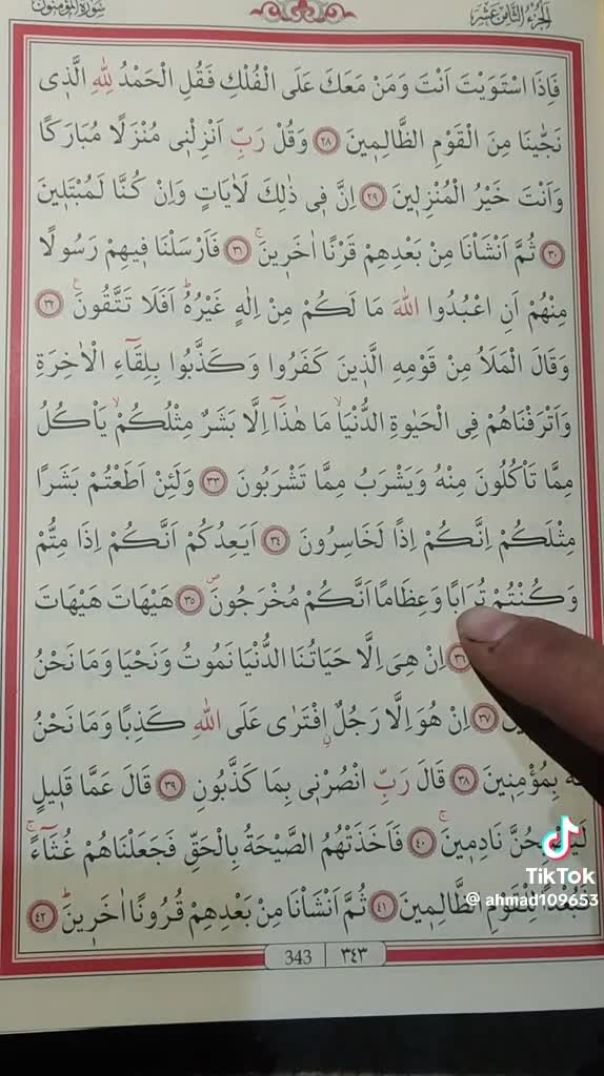 الجزء الثامن عشر
سورة المؤمنون
فَاِذَا اسْتَوَيْتَ اَنْتَ وَمَنْ مَعَكَ عَلَى الْفُلْكِ فَقُلِ الْحَمْدُ لِلّٰهِ الَّذٖى
نَجّٰينَا مِنَ الْقَوْمِ الظَّالِمٖينَ ﴿٢٨﴾ وَقُلْ رَبِّ اَنْزِلْنٖى مُنْزَلًا مُبَارَكًا
وَاَنْتَ خَيْرُ الْمُنْزِلٖينَ ﴿٢٩﴾ اِنَّ فٖى ذٰلِكَ لَاٰيَاتٍ وَاِنْ كُنَّا لَمُبْتَلٖينَ
﴿٣٠﴾ ثُمَّ اَنْشَاْنَا مِنْ بَعْدِهِمْ قَرْنًا اٰخَرٖينَ ﴿٣١﴾ فَاَرْسَلْنَا فٖيهِمْ رَسُولًا
مِنْهُمْ اَنِ اعْبُدُوا اللّٰهَ مَا لَكُمْ مِنْ اِلٰهٍ غَيْرُهُ اَفَلَا تَتَّقُونَ ﴿٣٢﴾
وَقَالَ الْمَلَاُ مِنْ قَوْمِهِ الَّذٖينَ كَفَرُوا وَكَذَّبُوا بِلِقَٓاءِ الْاٰخِرَةِ
وَاَتْرَفْنَاهُمْ فِى الْحَيٰوةِ الدُّنْيَا مَا هٰذَٓا اِلَّا بَشَرٌ مِثْلُكُمْ يَاْكُلُ
مِمَّا تَاْكُلُونَ مِنْهُ وَيَشْرَبُ مِمَّا تَشْرَبُونَ ﴿٣٣﴾ وَلَئِنْ اَطَعْتُمْ بَشَرًا
مِثْلَكُمْ اِنَّكُمْ اِذًا لَخَاسِرُونَ ﴿٣٤﴾ اَيَعِدُكُمْ اَنَّكُمْ اِذَا مِتُّمْ
وَكُنْتُمْ تُرَابًا وَعِظَامًا اَنَّكُمْ مُخْرَجُونَ ﴿٣٥﴾ هَيْهَاتَ هَيْهَاتَ
﴿٣٦﴾ اِنْ هِىَ اِلَّا حَيَاتُنَا الدُّنْيَا نَمُوتُ وَنَحْيَا وَمَا نَحْنُ
﴿٣٧﴾ اِنْ هُوَ اِلَّا رَجُلٌ افْتَرٰى عَلَى اللّٰهِ كَذِبًا وَمَا نَحْنُ
لَهُ بِمُؤْمِنٖينَ ﴿٣٨﴾ قَالَ رَبِّ انْصُرْنٖى بِمَا كَذَّبُونِ ﴿٣٩﴾ قَالَ عَمَّا قَلٖيلٍ
لَيُصْبِحُنَّ نَادِمٖينَ ﴿٤٠﴾ فَاَخَذَتْهُمُ الصَّيْحَةُ بِالْحَقِّ فَجَعَلْنَاهُمْ غُثَٓاءً
فَبُعْدًا لِلْقَوْمِ الظَّالِمٖينَ ﴿٤١﴾ ثُمَّ اَنْشَاْنَا مِنْ بَعْدِهِمْ قُرُونًا اٰخَرٖينَ ﴿٤٢﴾
343 ٣٤٣
TikTok
@ahmad109653